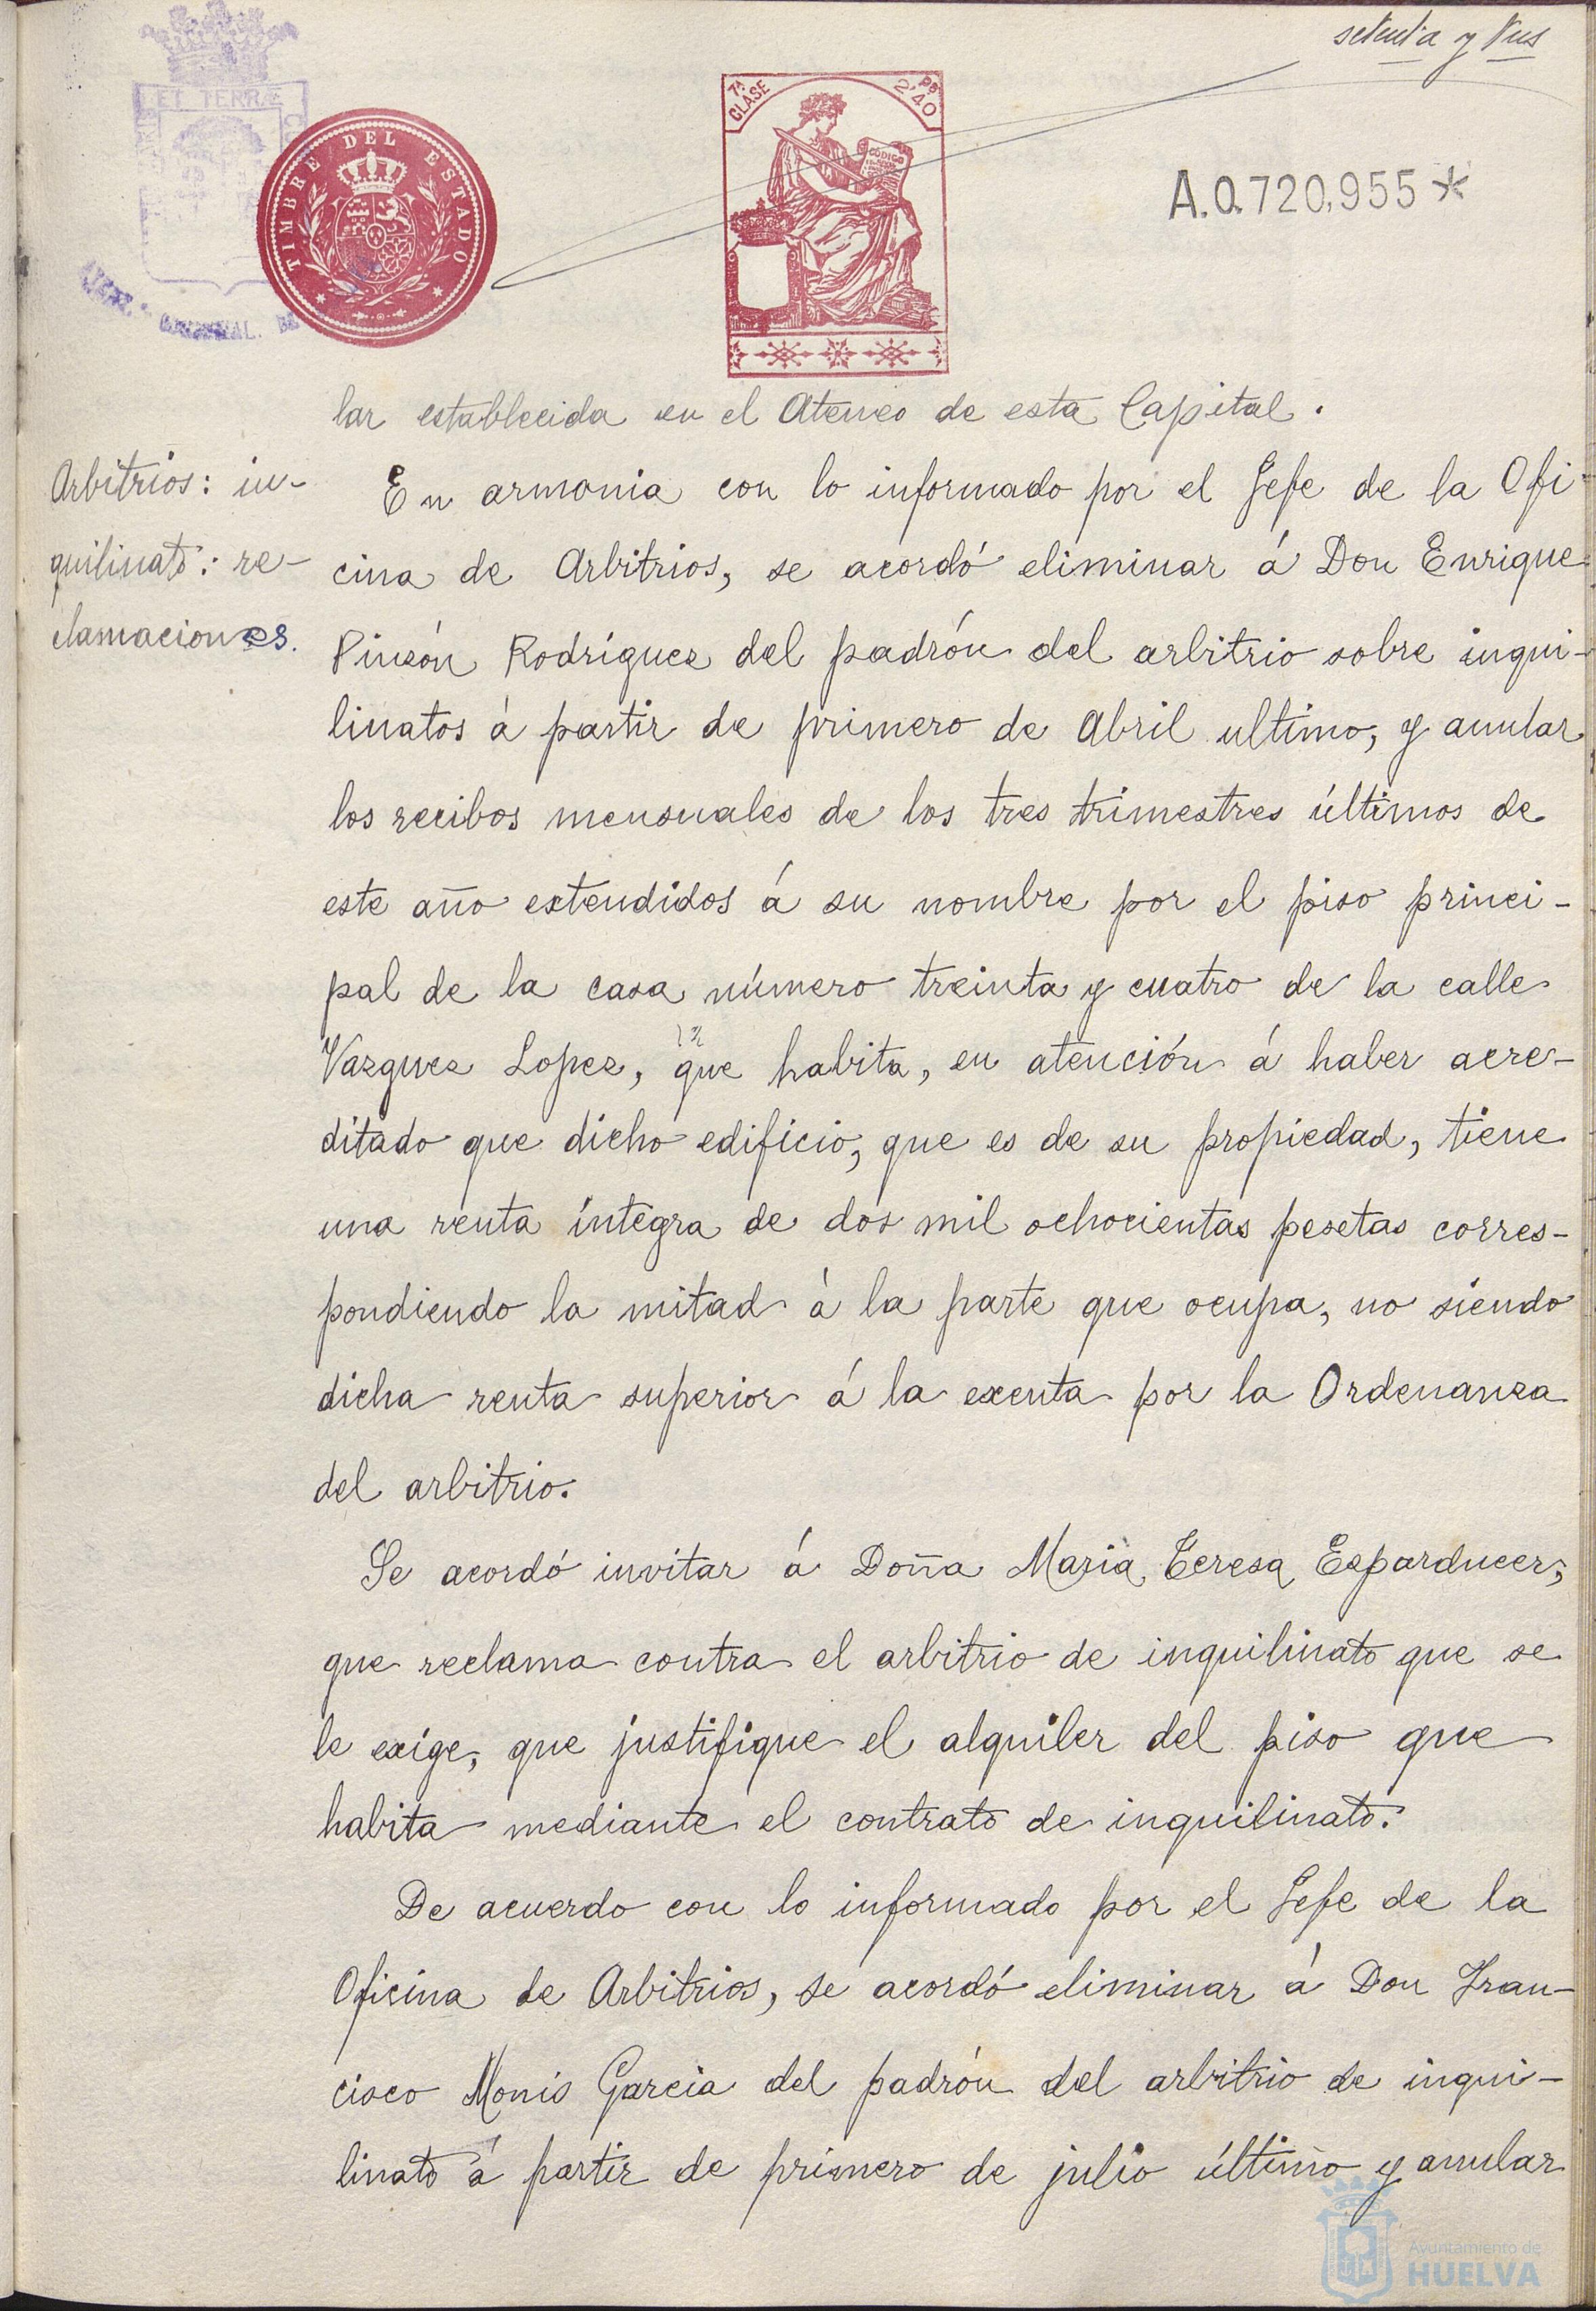 setenta y tres
ET TERRÆ
TIMBRE DEL ESTADO
7ª CLASE
2'40
CÓDIGO
A.0.720,955*
lar establecida en el Ateneo de esta Capital.
Arbitrios: in-
quilinato: re-
clamaciones.
En armonia con lo informado por el Jefe de la Ofi-
cina de Arbitrios, se acordó eliminar á Don Enrique
Pinzón Rodríguez del padrón del arbitrio sobre inqui-
linatos á partir de primero de Abril ultimo, y anular
los recibos mensuales de los tres trimestres últimos de
este año extendidos á su nombre por el piso princi-
pal de la casa número treinta y cuatro de la calle
Vazquez Lopez, que habita, en atención á haber acre-
ditado que dicho edificio, que es de su propiedad, tiene
una renta íntegra de dos mil ochocientas pesetas corres-
pondiendo la mitad á la parte que ocupa, no siendo
dicha renta superior á la exenta por la Ordenanza
del arbitrio.
Se acordó invitar á Doña Maria Teresa Esparducer,
que reclama contra el arbitrio de inquilinato que se
le exige, que justifique el alquiler del piso que
habita mediante el contrato de inquilinato.
De acuerdo con lo informado por el Jefe de la
Oficina de Arbitrios, se acordó eliminar á Don Fran-
cisco Monis Garcia del padrón del arbitrio de inqui-
linato á partir de primero de julio último y anular
Ayuntamiento de
HUELVA